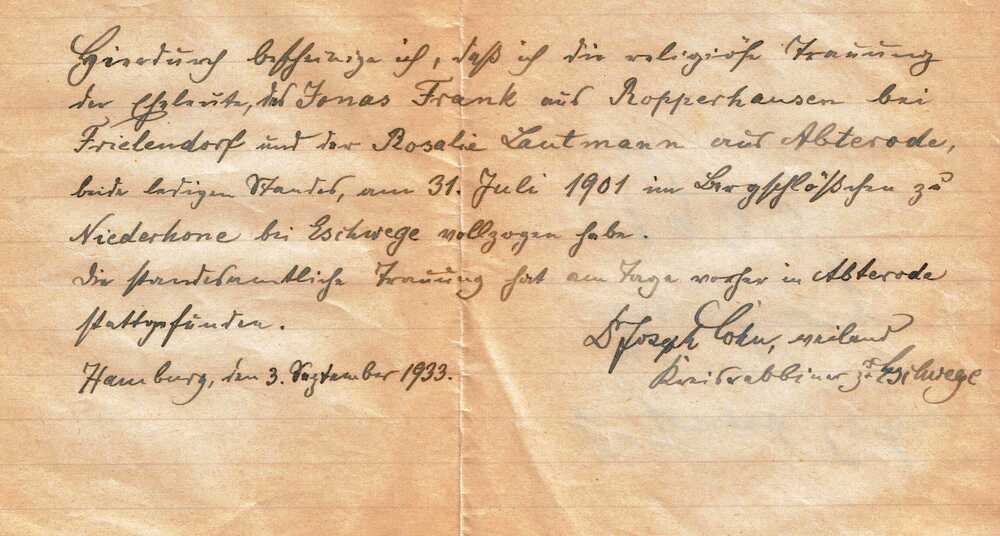 Hierdurch bescheinige ich, daß ich die religiöse Trauung
der Eheleute, des Jonas Frank aus Ropperhausen bei
Frielendorf und der Rosalie Lautmann aus Abterode,
beide ledigen Standes, am 31. Juli 1901 im Bergschlößchen zu
Niederhone bei Eschwege vollzogen habe.
Die standesamtliche Trauung hat am Tage vorher in Abterode
stattgefunden.
Dr Joseph Cohn, weiland
Hamburg, den 3. September 1933.
Kreisrabbiner zu Eschwege